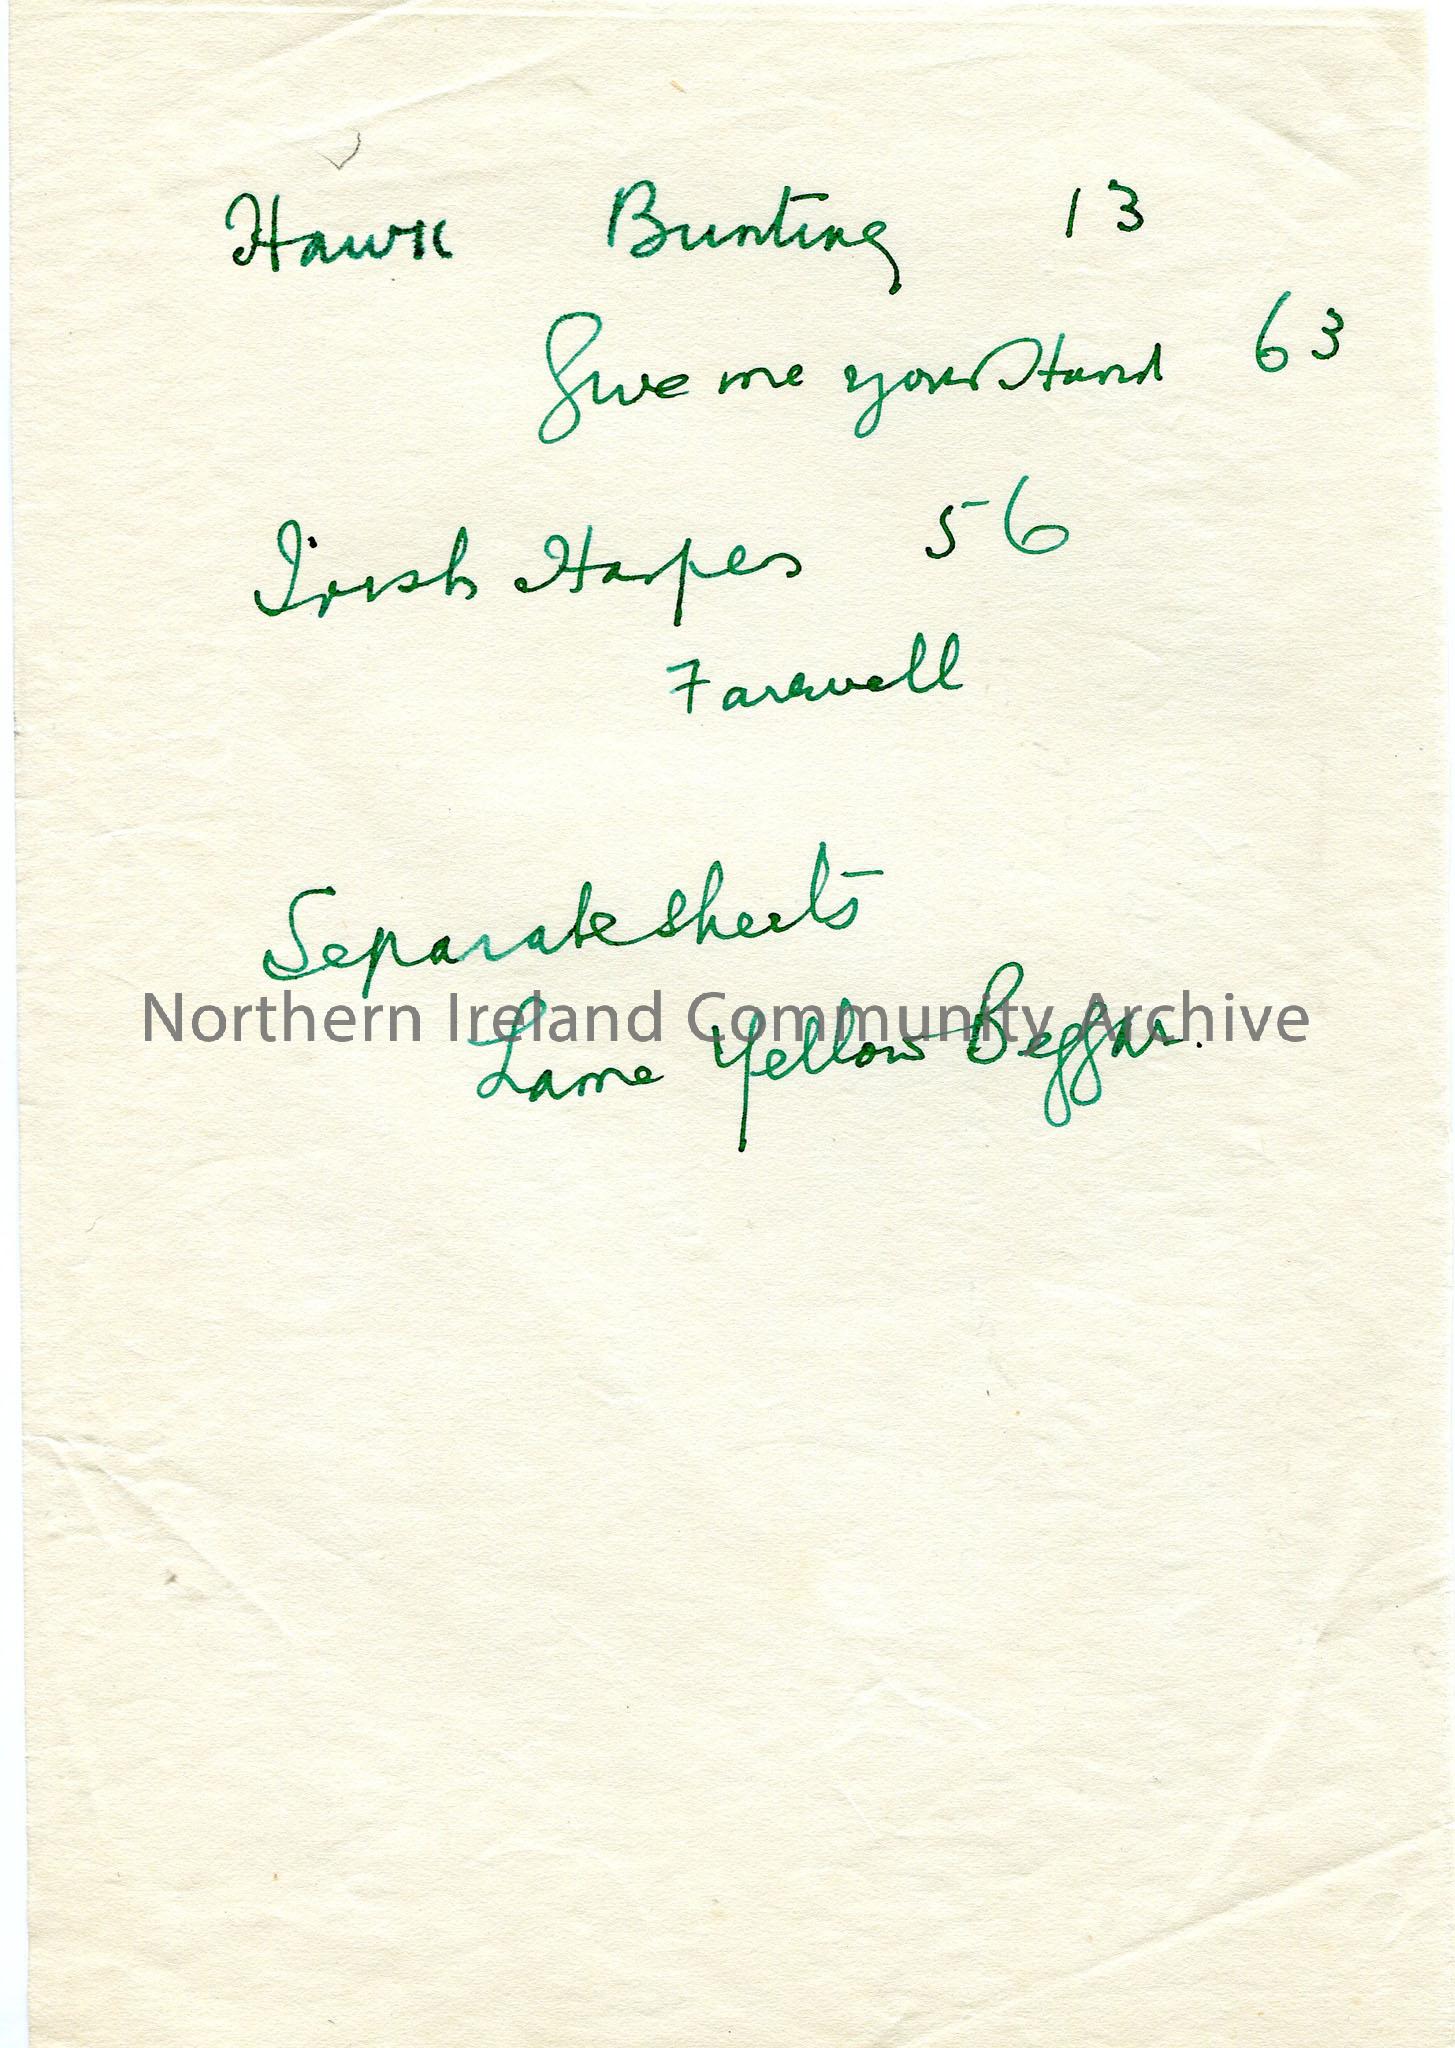 Hawk Bunting 13
Give me your Hand 63
Irish Harpes 56
Farewell
Separate sheets
Northern Ireland Community Archive
Lame Yellow Beggar.